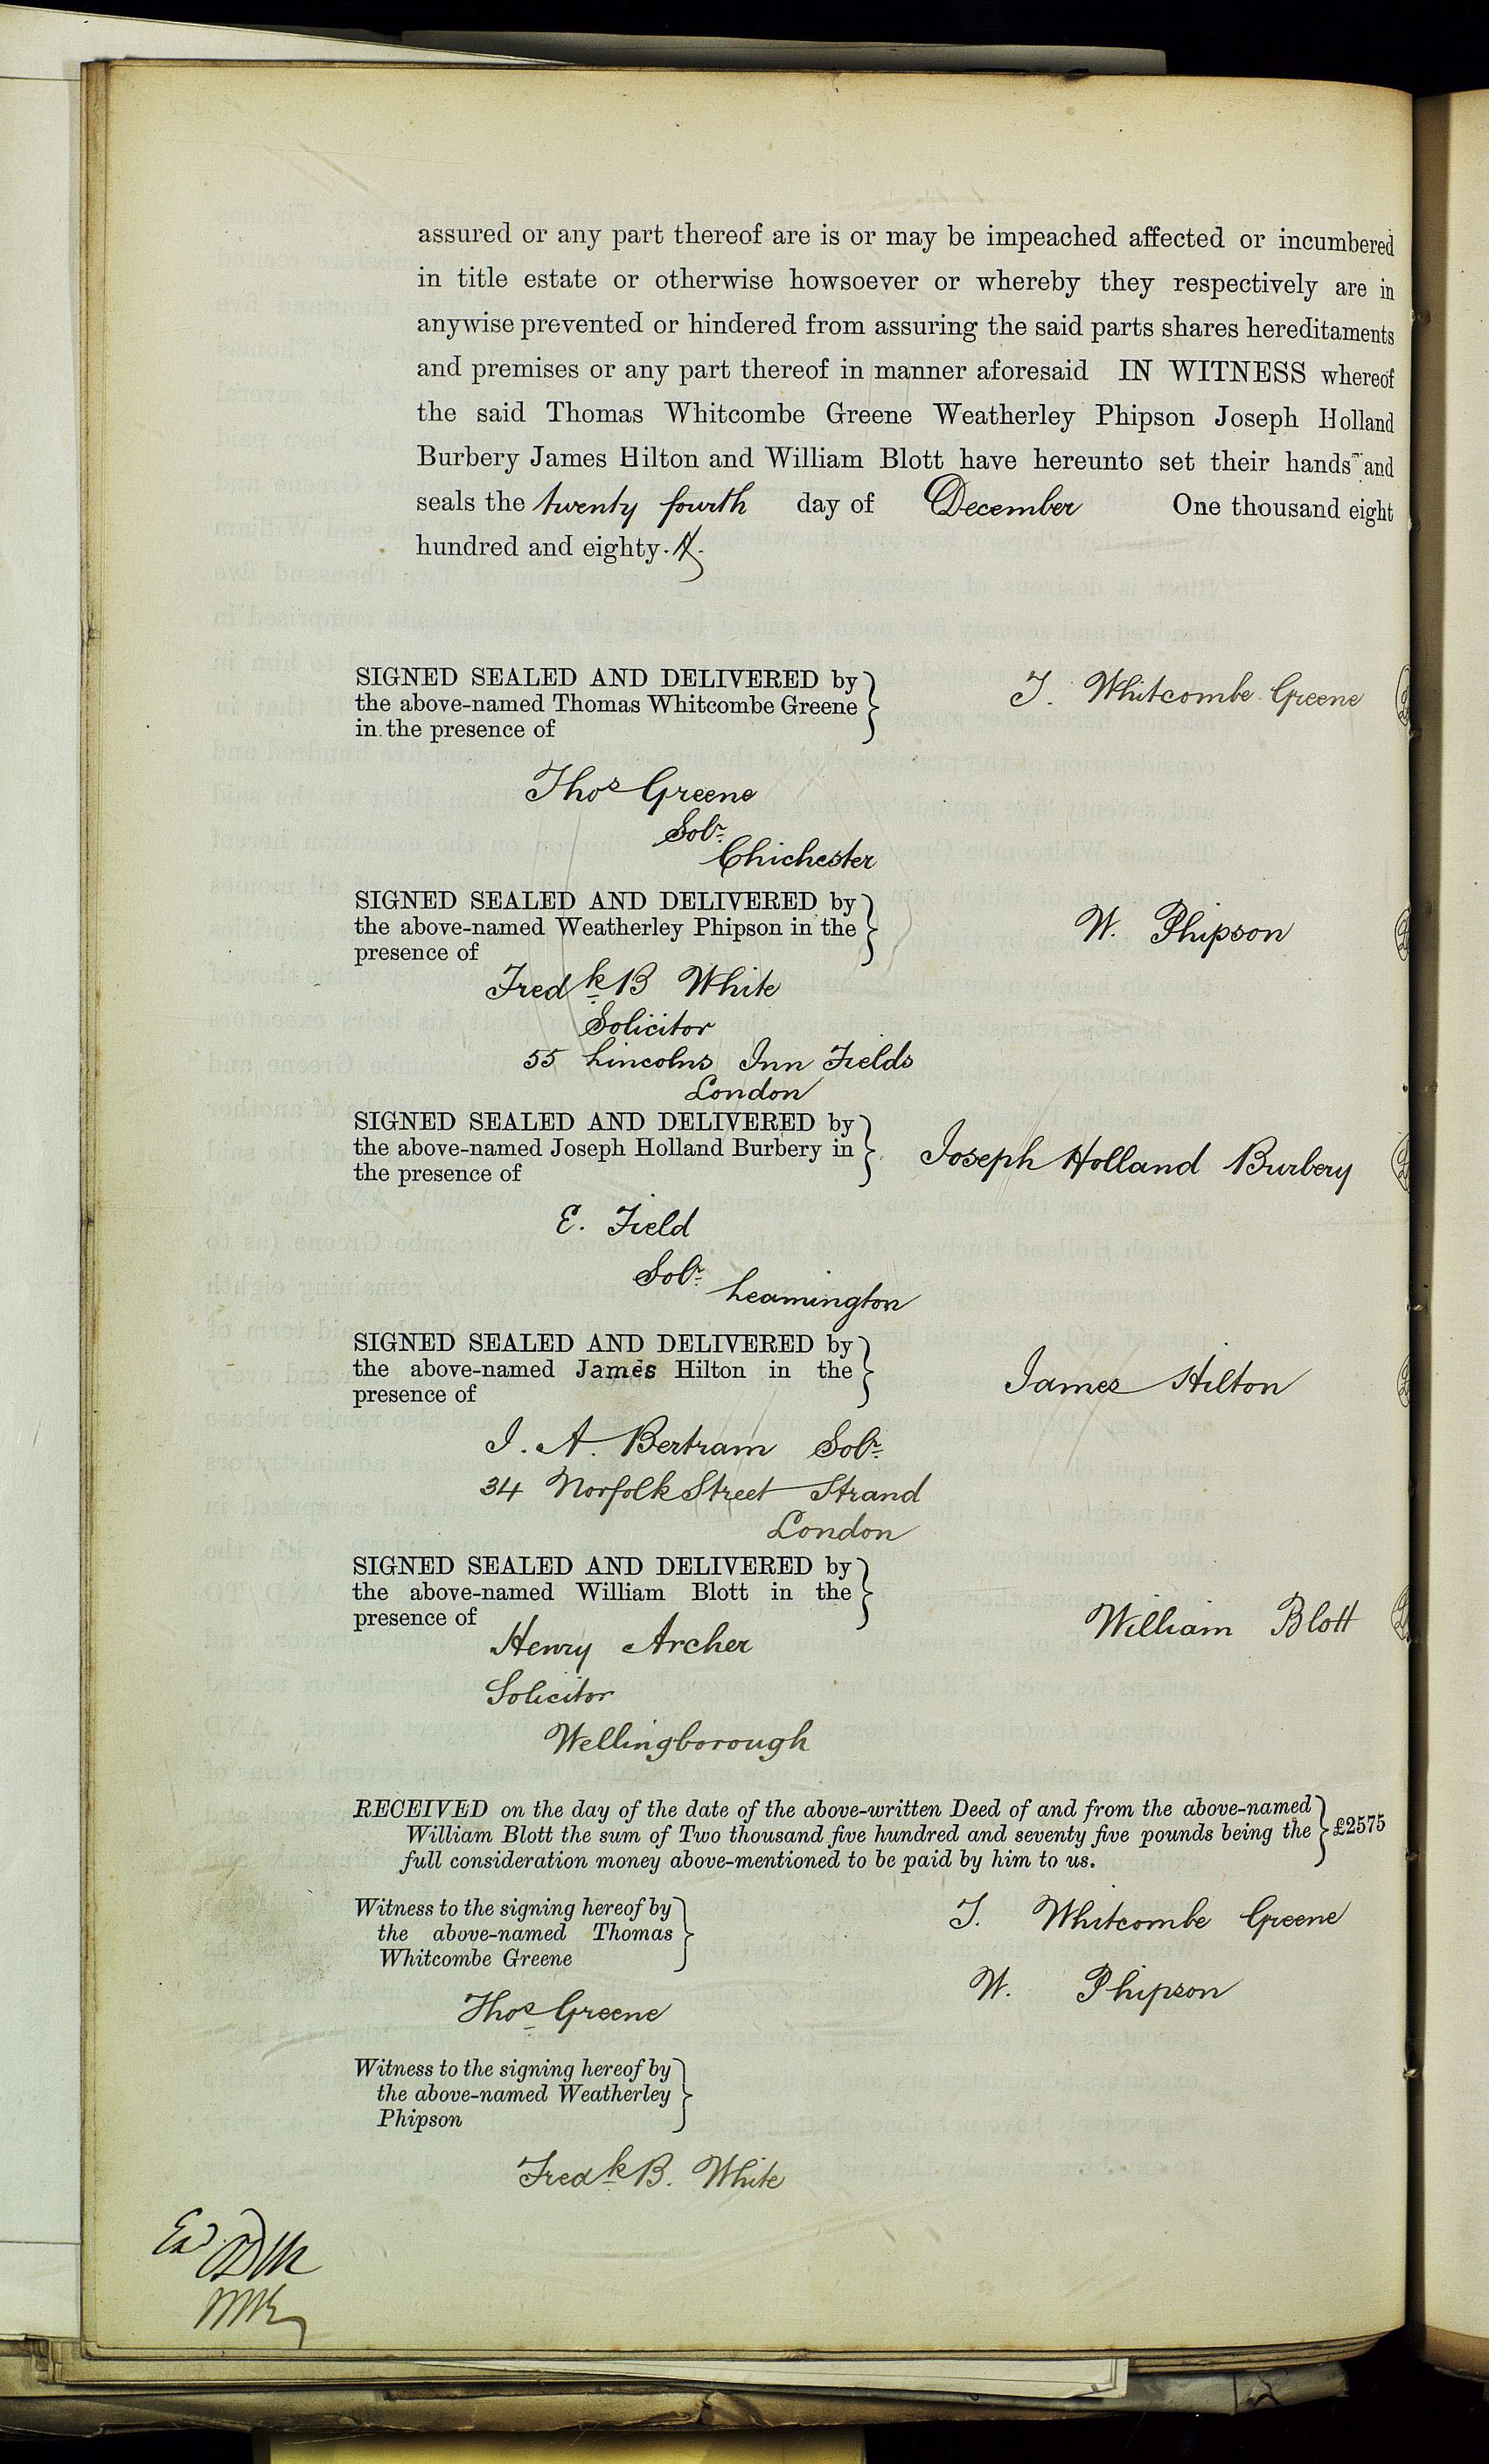 assured or any part thereof are is or may be impeached affected or incumbered
in title estate or otherwise howsoever or whereby they respectively are in
anywise prevented or hindered from assuring the said parts shares hereditaments
and premises or any part thereof in manner aforesaid IN WITNESS whereof
the said Thomas Whitcombe Greene Weatherley Phipson Joseph Holland
Burbery James Hilton and William Blott have hereunto set their hands and
seals the twenty fourth day of December One thousand eight
hundred and eighty.
SIGNED SEALED AND DELIVERED by
the above-named Thomas Whitcombe Greene
in the presence of
T. Whitcombe Greene
Thos Greene
Solr
Chichester
SIGNED SEALED AND DELIVERED by
the above-named Weatherley Phipson in the
presence of
W. Phipson
Fredk B White
Solicitor
55 Lincolns Inn Fields
London
SIGNED SEALED AND DELIVERED by
the above-named Joseph Holland Burbery in
the presence of
Joseph Holland Burbery
E. Field
Solr
Leamington
SIGNED SEALED AND DELIVERED by
the above-named James Hilton in the
presence of
James Hilton
J. A. Bertram Solr
34 Norfolk Street Strand
London
SIGNED SEALED AND DELIVERED by
the above-named William Blott in the
presence of
William Blott
Henry Archer
Solicitor
Wellingborough
RECEIVED on the day of the date of the above-written Deed of and from the above-named
William Blott the sum of Two thousand five hundred and seventy five pounds being the
full consideration money above-mentioned to be paid by him to us.
£2575
Witness to the signing hereof by
the above-named Thomas
Whitcombe Greene
T. Whitcombe Greene
W. Phipson
Thos Greene
Witness to the signing hereof by
the above-named Weatherley
Phipson
Fredk B. White